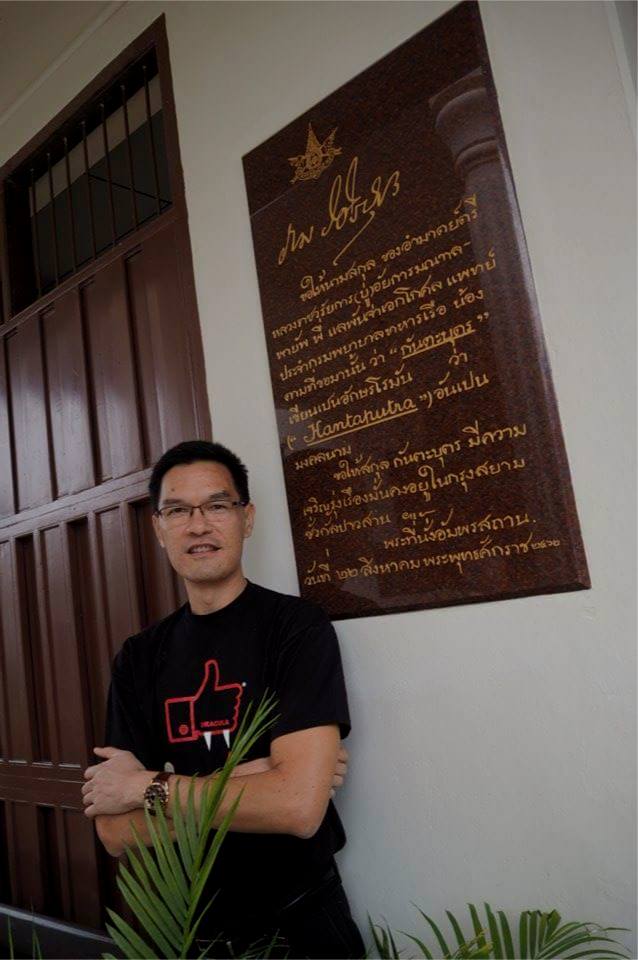 ราม วชิราวุธ
ขอให้นามสกุล ของอำมาตย์ตรี
หลวงราชวรัยการ (ปู่) อัยการมณฑล-
พายัพ พี่ แลพันจ่าเอกโกศล แพทย์
ประจำกรมพยาบาลทหารเรือ น้อง
ตามที่ขอมานั้น ว่า “กันตะบุตร”
เขียนเปนอักษรโรมัน ว่า
(“Kantaputra”) อันเปน
มงคลนาม
ขอให้สกุล กันตะบุตร มีความ
เจริญรุ่งเรืองมั่นคงอยู่ในกรุงสยาม
ชั่วกัลปาวสาน ๚ะ
พระที่นั่งอัมพรสถาน.
วันที่ ๒๒ สิงหาคม พระพุทธศักราช ๒๔๖๒
DRACULA